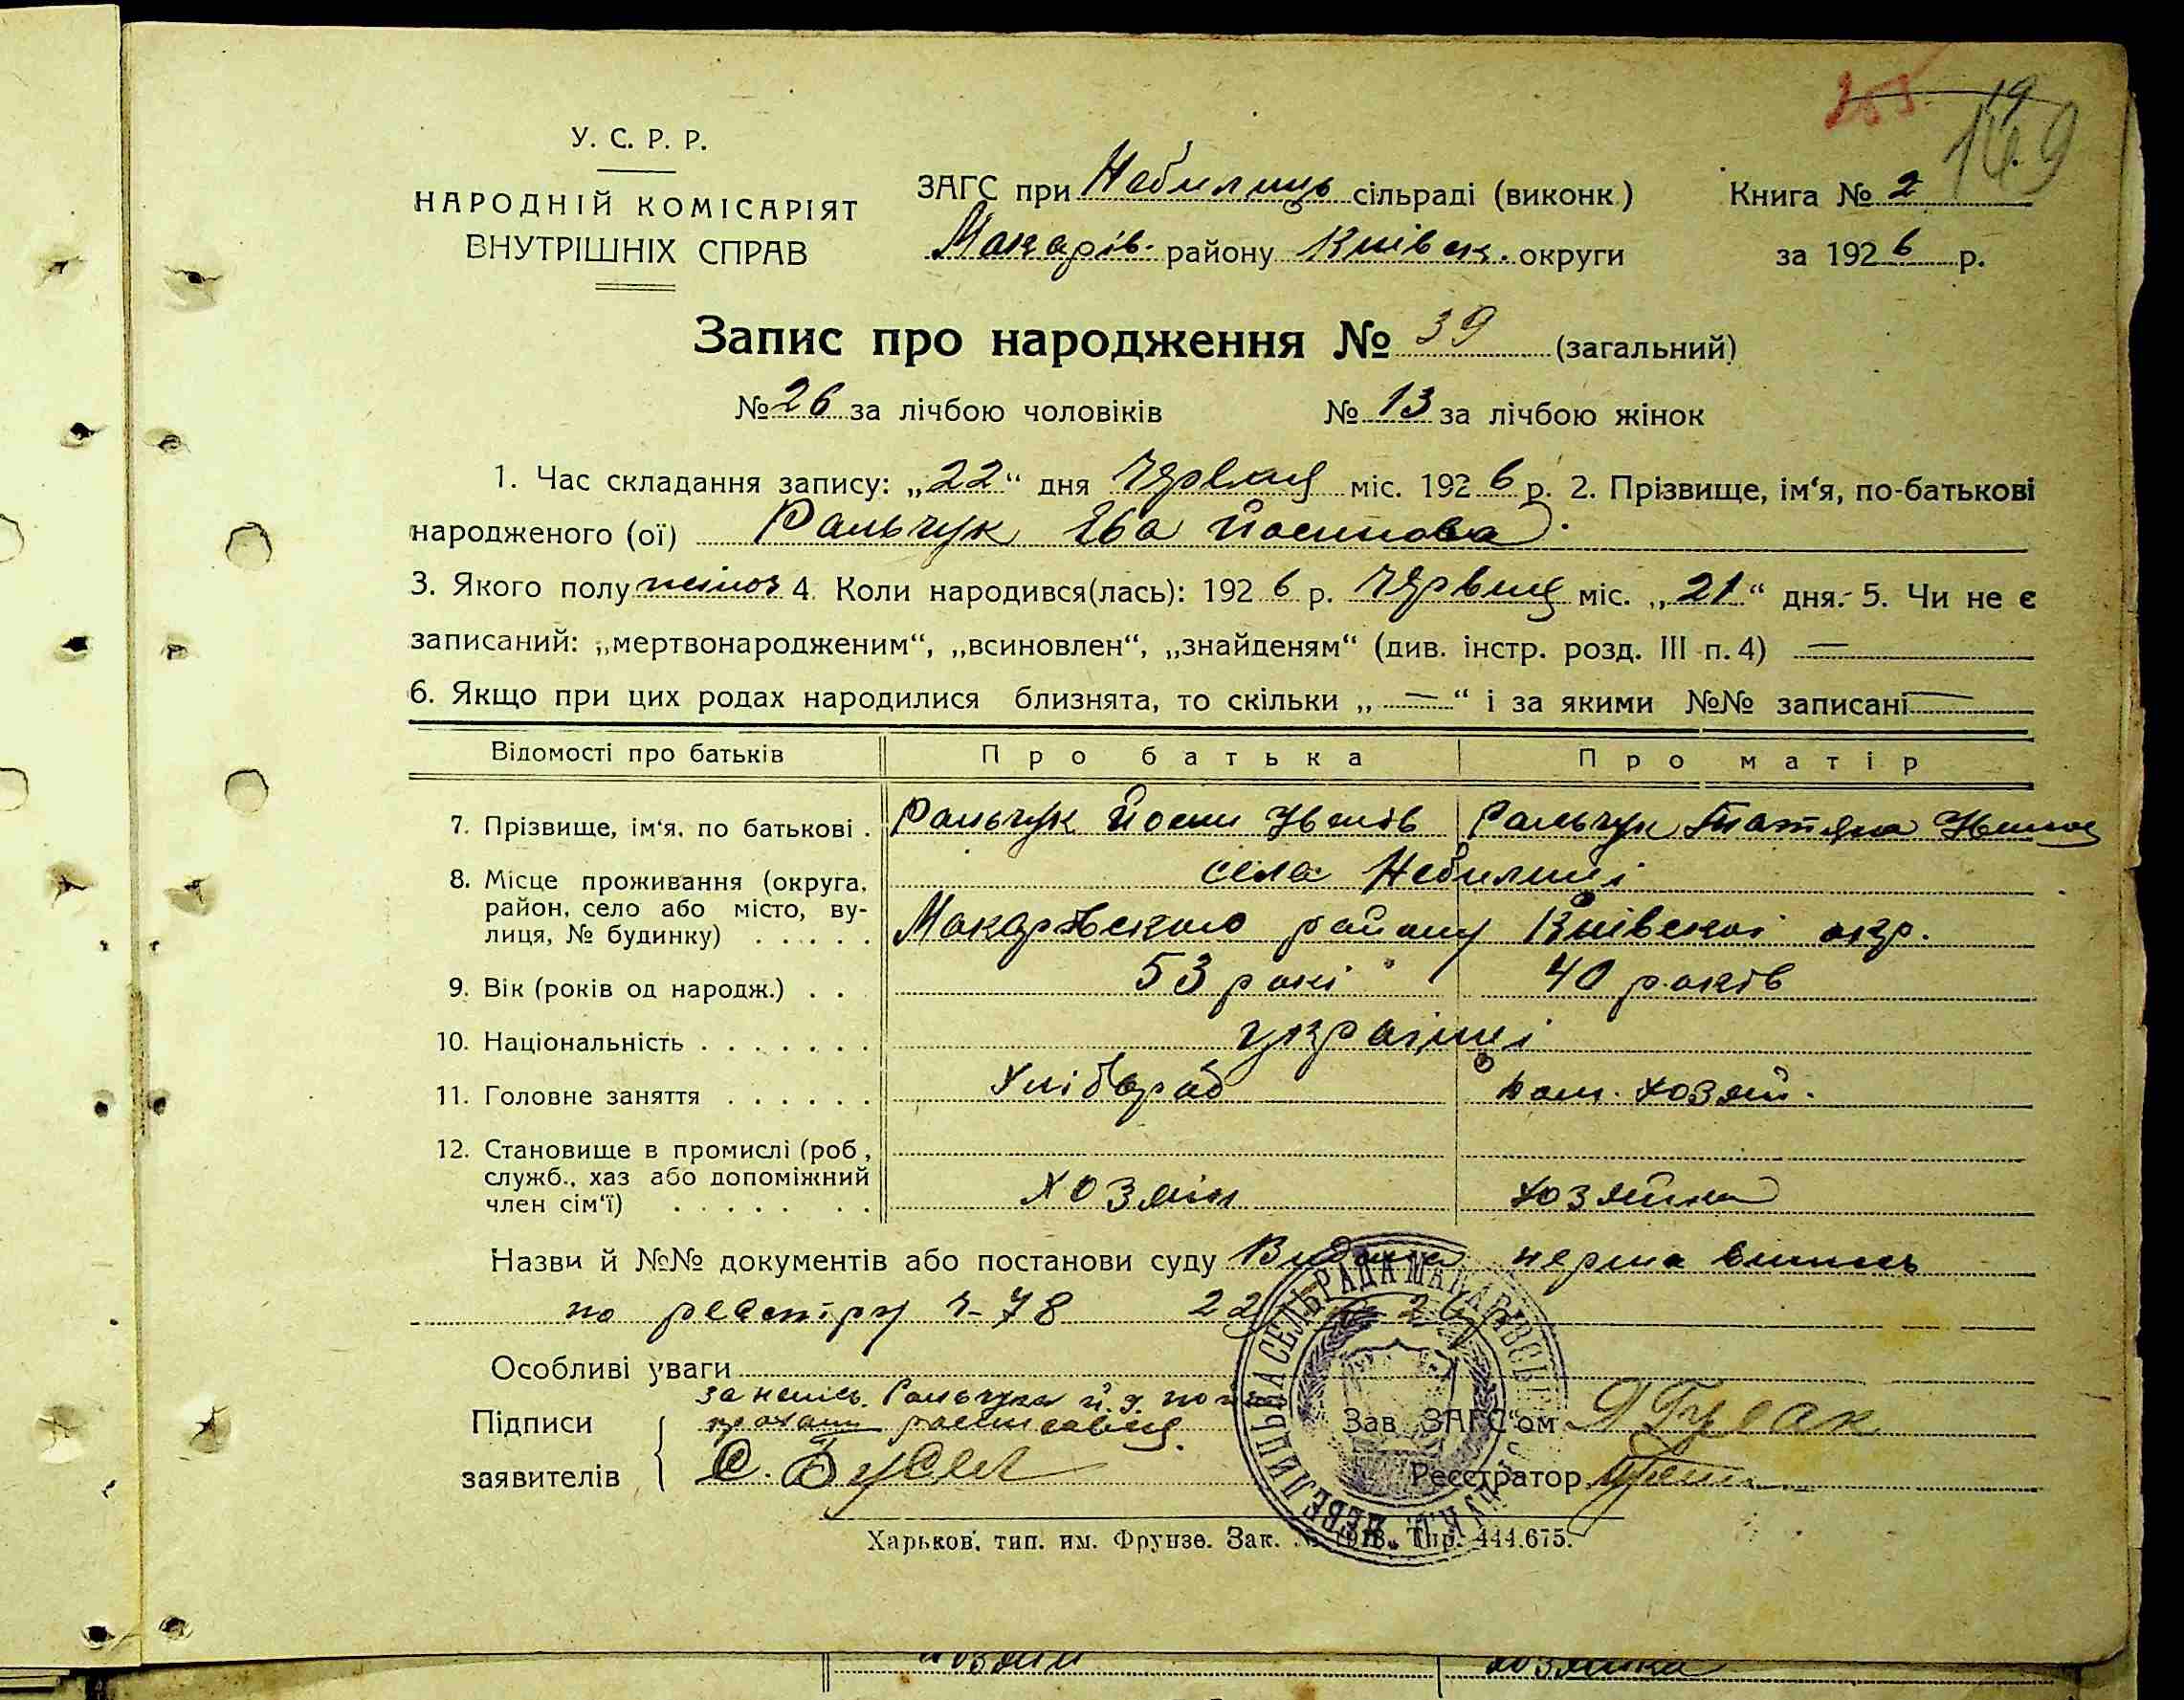 253
19
169
У. С. Р. Р.
НАРОДНІЙ КОМІСАРІЯТ
ВНУТРІШНІХ СПРАВ
ЗАГС при Небилиць сільраді (виконк.)
Макарів. району Київськ. округи
Книга № 2
за 1926 р.
Запис про народження № 39 (загальний)
№ 26 за лічбою чоловіків № 13 за лічбою жінок
1. Час складання запису: „22“ дня Червня міс. 1926 р. 2. Прізвище, ім‘я, по-батькові
народженого (ої) Ральчук Єва Йосипова
3. Якого полу жіноч 4. Коли народився(лась): 1926 р. Червня міс. „21“ дня. 5. Чи не є
записаний: „мертвонародженим“, „всиновлен“, „знайденям“ (див. інстр. розд. III п. 4) —
6. Якщо при цих родах народилися близнята, то скільки „—“ і за якими №№ записані —
Відомості про батьків Про батька Про матір
7. Прізвище, ім‘я, по батькові . Ральчук Йосип Ральчук Татяна
8. Місце проживання (округа, села Небилиці
район, село або місто, ву-
лиця, № будинку) . . . . . Макарівського району Київської окр.
9. Вік (років од народж.) . . 53 рокі 40 років
10. Національність . . . . . . . українці
11. Головне заняття . . . . . . Хлібороб дом. хозяй.
12. Становище в промислі (роб.,
служб., хаз або допоміжний
член сім‘ї) . . . . . . . . хозяін хозяйка
Назви й №№ документів або постанови суду Видана перша випись
по реєстру ч-78 22 26
Особливі уваги
за непись. Ральчука Й. І. по його
прохан росписався
Підписи
заявителів
С. Бусел
Зав. ЗАГС‘ом Гулак
Реєстратор
СЕЛЬРАДА МАКАРІВСЬК
Харьков, тип. им. Фрунзе. Зак. № 1918. Тир. 444.675.
хозяин хозяйка